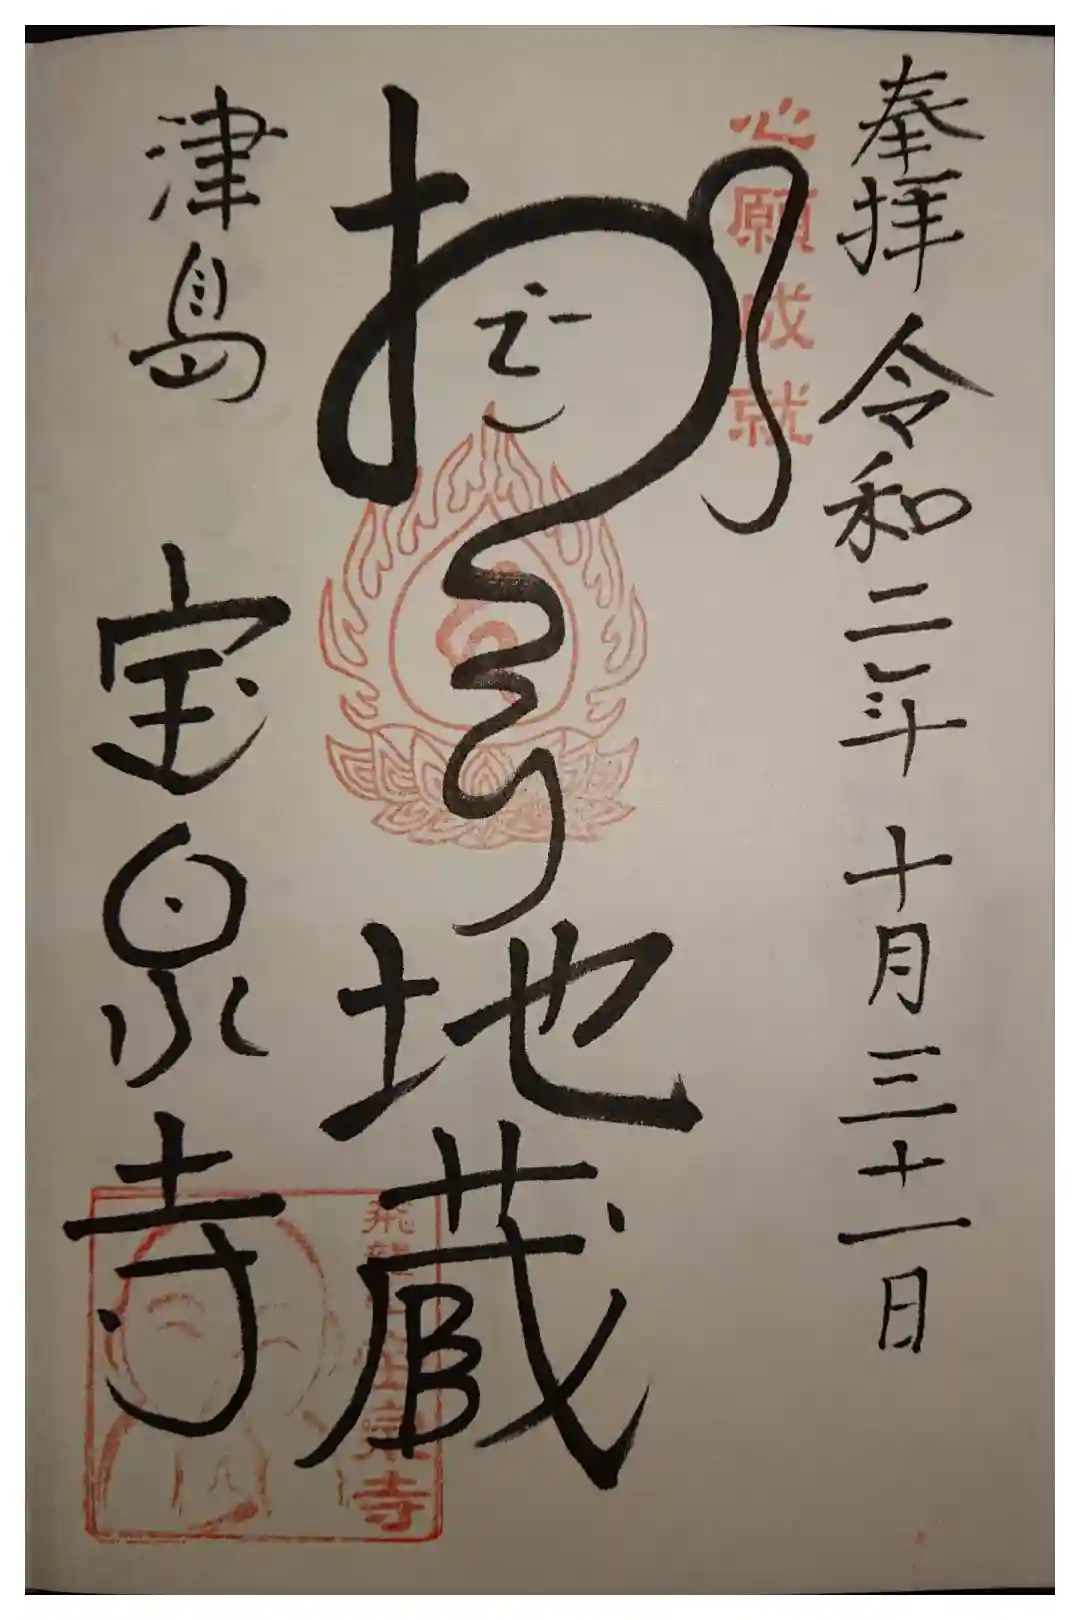 奉拝 令和二年 十月三十一日
心願成就
地蔵
津島 宝泉寺
飛龍山宝泉寺